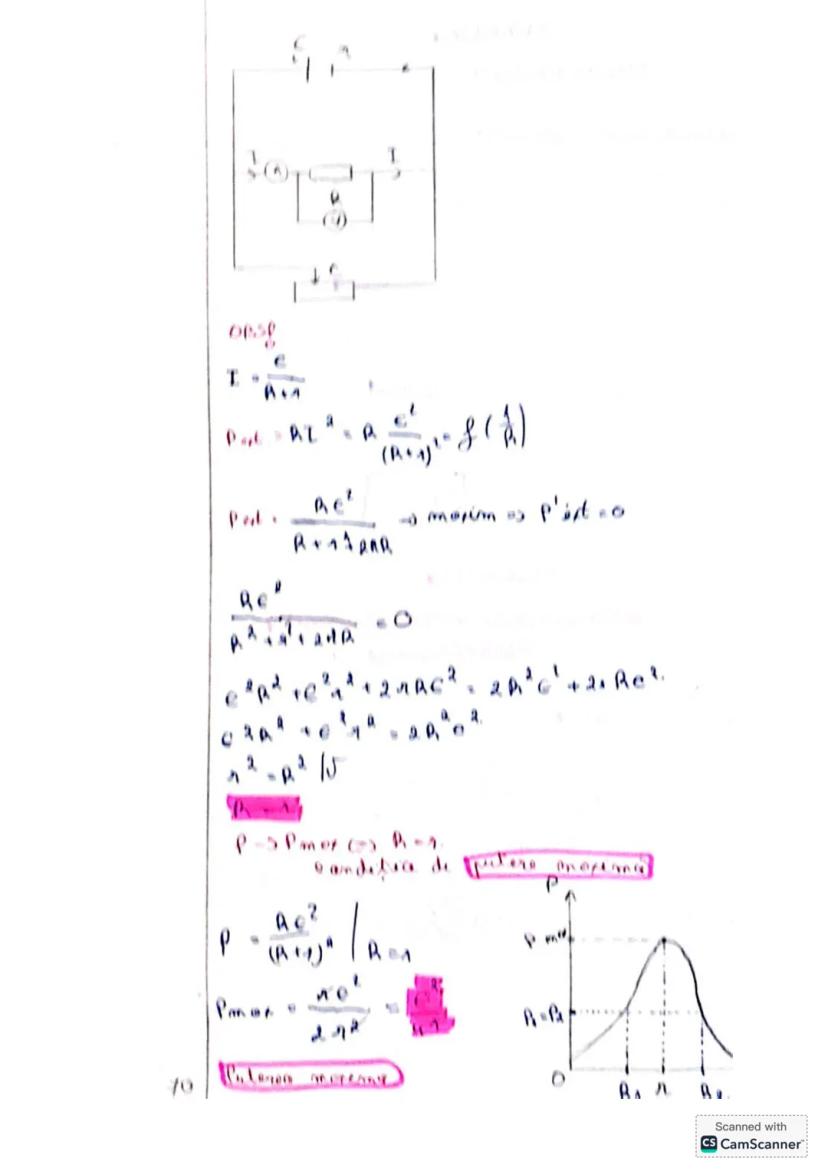 E r
I A I
R
V
OBS!
I = e / R+r
P ext = RI² = R e² / (R+r)² = f(1/R)
P ext = Re² / R+r+2rR → maxim => P'ext = 0
Re² / R²+r²+2rR = 0
e²R² + e²r² + 2rRe² = 2R²e² + 2rRe²
e²R² + e²r² = 2R²e²
r² = R² |√
R = r
P → Pmax <=> R = r
condiția de putere maximă
P = Re² / (R+r)² | R=r
Pmax = re² / 2r² = e² / 4r
Puterea maximă
P
P max
P₁ = P₂
O R₁ r R₂
10
Scanned with
CS CamScanner